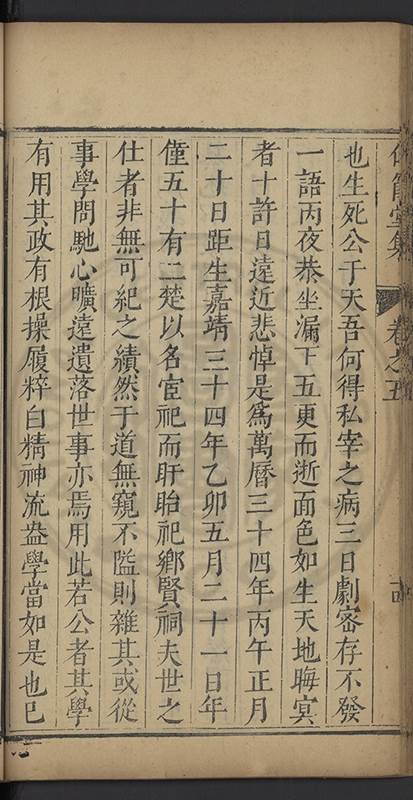 卷之五
也生死公于天吾何得私宰之病三日劇密存不發
一語丙夜恭坐漏下五更而逝面色如生天地晦㝠
者十許日遠近悲悼是爲萬曆三十四年丙午正月
二十日距生嘉靖三十四年乙卯五月二十一日年
僅五十有二楚以名宦祀而盱眙祀鄉賢祠夫世之
仕者非無可紀之績然于道無窺不隘則雜其或從
事學問馳心曠遠遺落世事亦焉用此若公者其學
有用其政有根操履粹白精神流盎學當如是也已